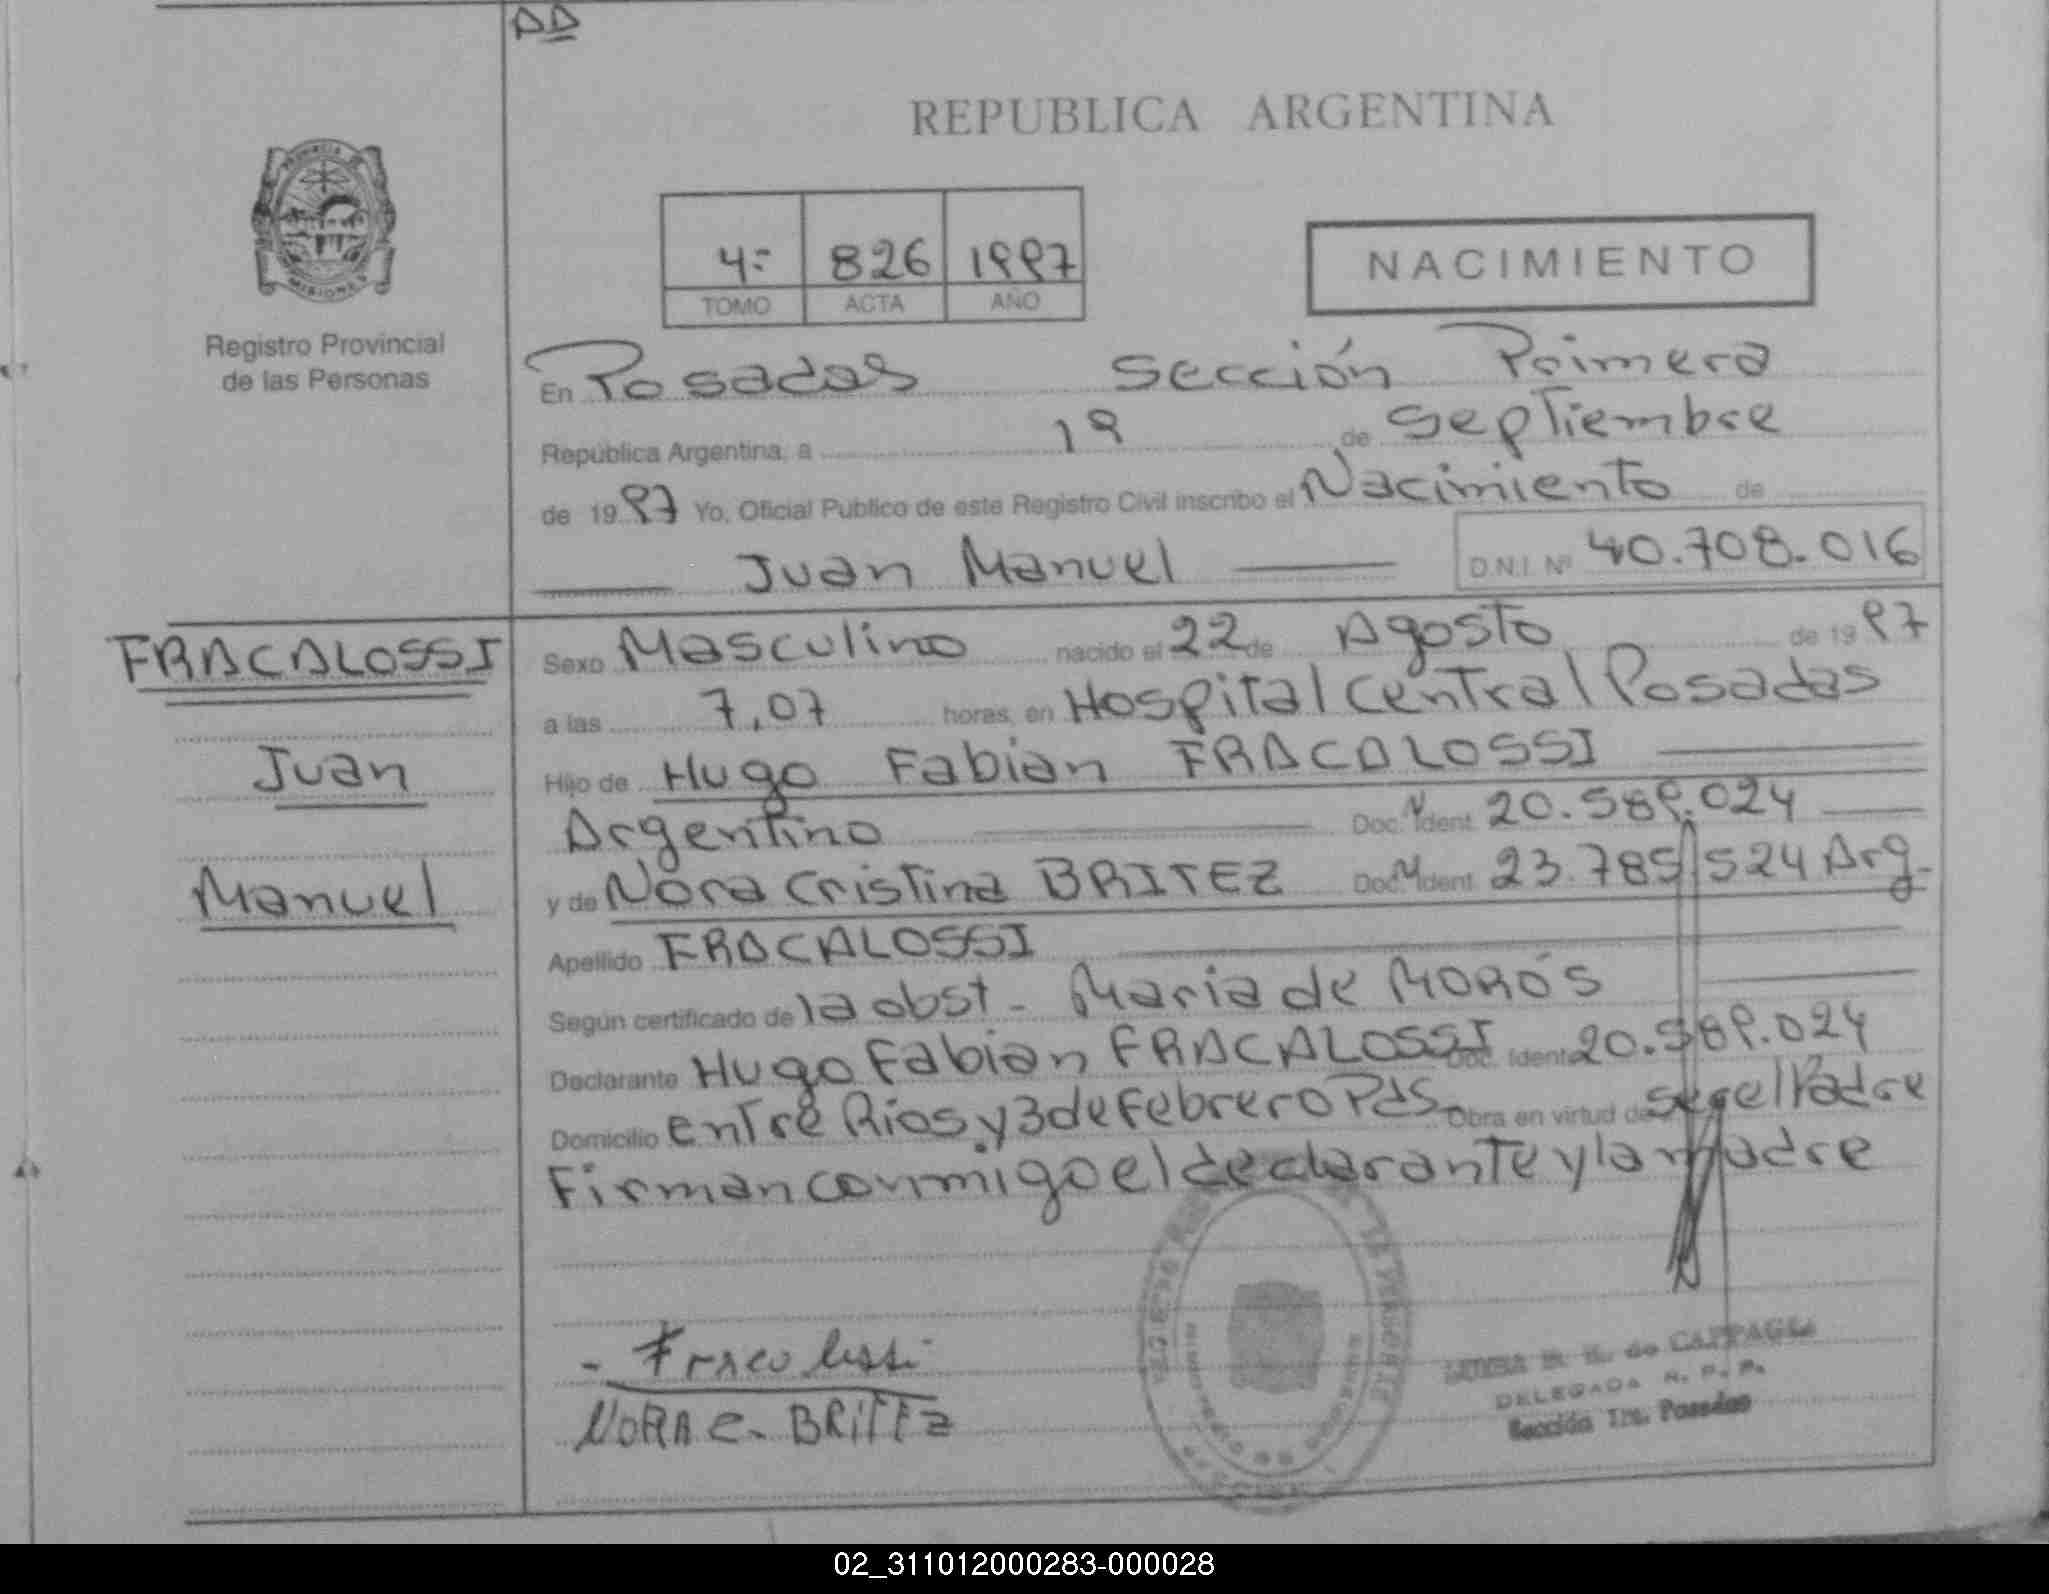 DD
REPUBLICA ARGENTINA
PROVINCIA DE
MISIONES
Registro Provincial
de las Personas
4= 826 1997
TOMO ACTA AÑO
NACIMIENTO
En Posadas Sección Primera
República Argentina, a 19 de Septiembre
de 1997 Yo, Oficial Público de este Registro Civil inscribo el Nacimiento de
Juan Manuel D.N.I. Nº 40.708.016
FRACALOSSI
Juan
Manuel
Sexo Masculino nacido el 22 de Agosto de 1997
a las 7,07 horas, en Hospital Central Posadas
Hijo de Hugo Fabian FRACALOSSI
Argentino Doc. Ident. 20.589.024
y de Nora Cristina BRITEZ Doc. Ident. 23.785 524 Arg.
Apellido FRACALOSSI
Según certificado de la obst - Maria de MOROS
Declarante Hugo Fabian FRACALOSSI Doc. Ident. 20.589.024
Domicilio entre Rios y 3 de Febrero Pds. Obra en virtud de ser el Padre
Firman conmigo el declarante y la madre
- Fracalossi
NORA C. BRITEZ
de CAPPAGLI
DELEGADA R. P. P.
Sección 1ra. Posadas
02_311012000283-000028